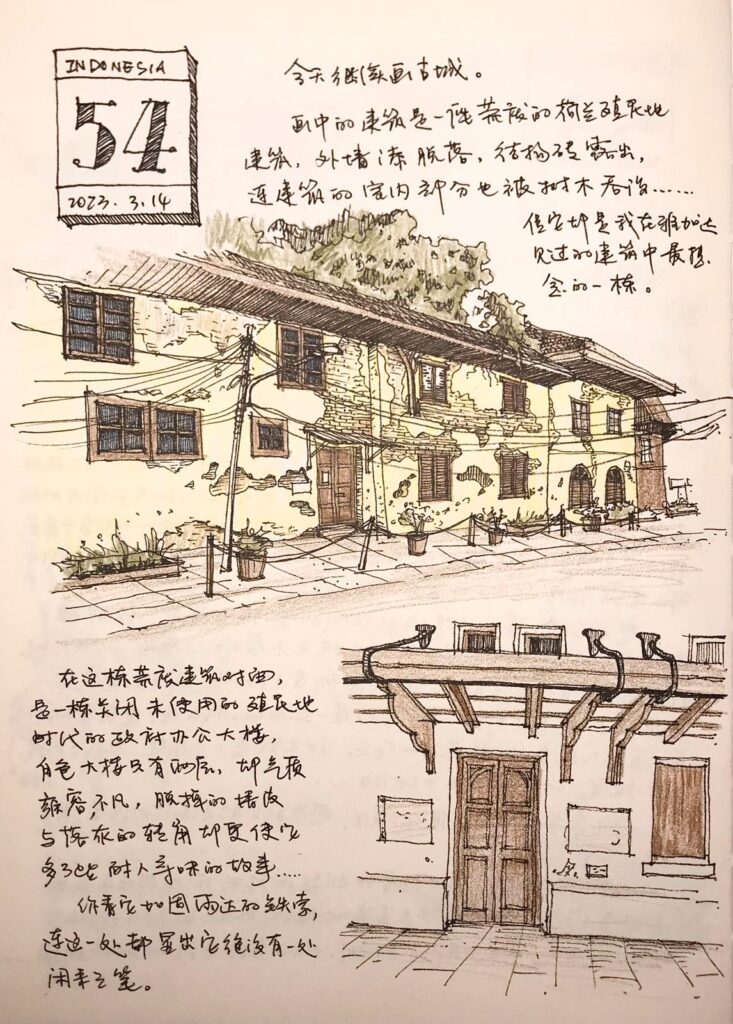 INDONESIA
54
2023.3.14
今天继续画古城。
画中的建筑是一栋荒废的荷兰殖民地
建筑，外墙漆脱落，结构砖露出，
连建筑的室内部分也被树木吞没……
但它却是我在雅加达
见过的建筑中最想
念的一栋。
在这栋荒废建筑对面，
是一栋关闭未使用的殖民地
时代的政府办公大楼，
白色大楼只有两层，却气质
雍容不凡，脱掉的墙皮
与落灰的转角却更使它
多了些耐人寻味的故事……
你看它加固雨达的铁索，
连这一处都显出它绝没有一处
闲来之笔。